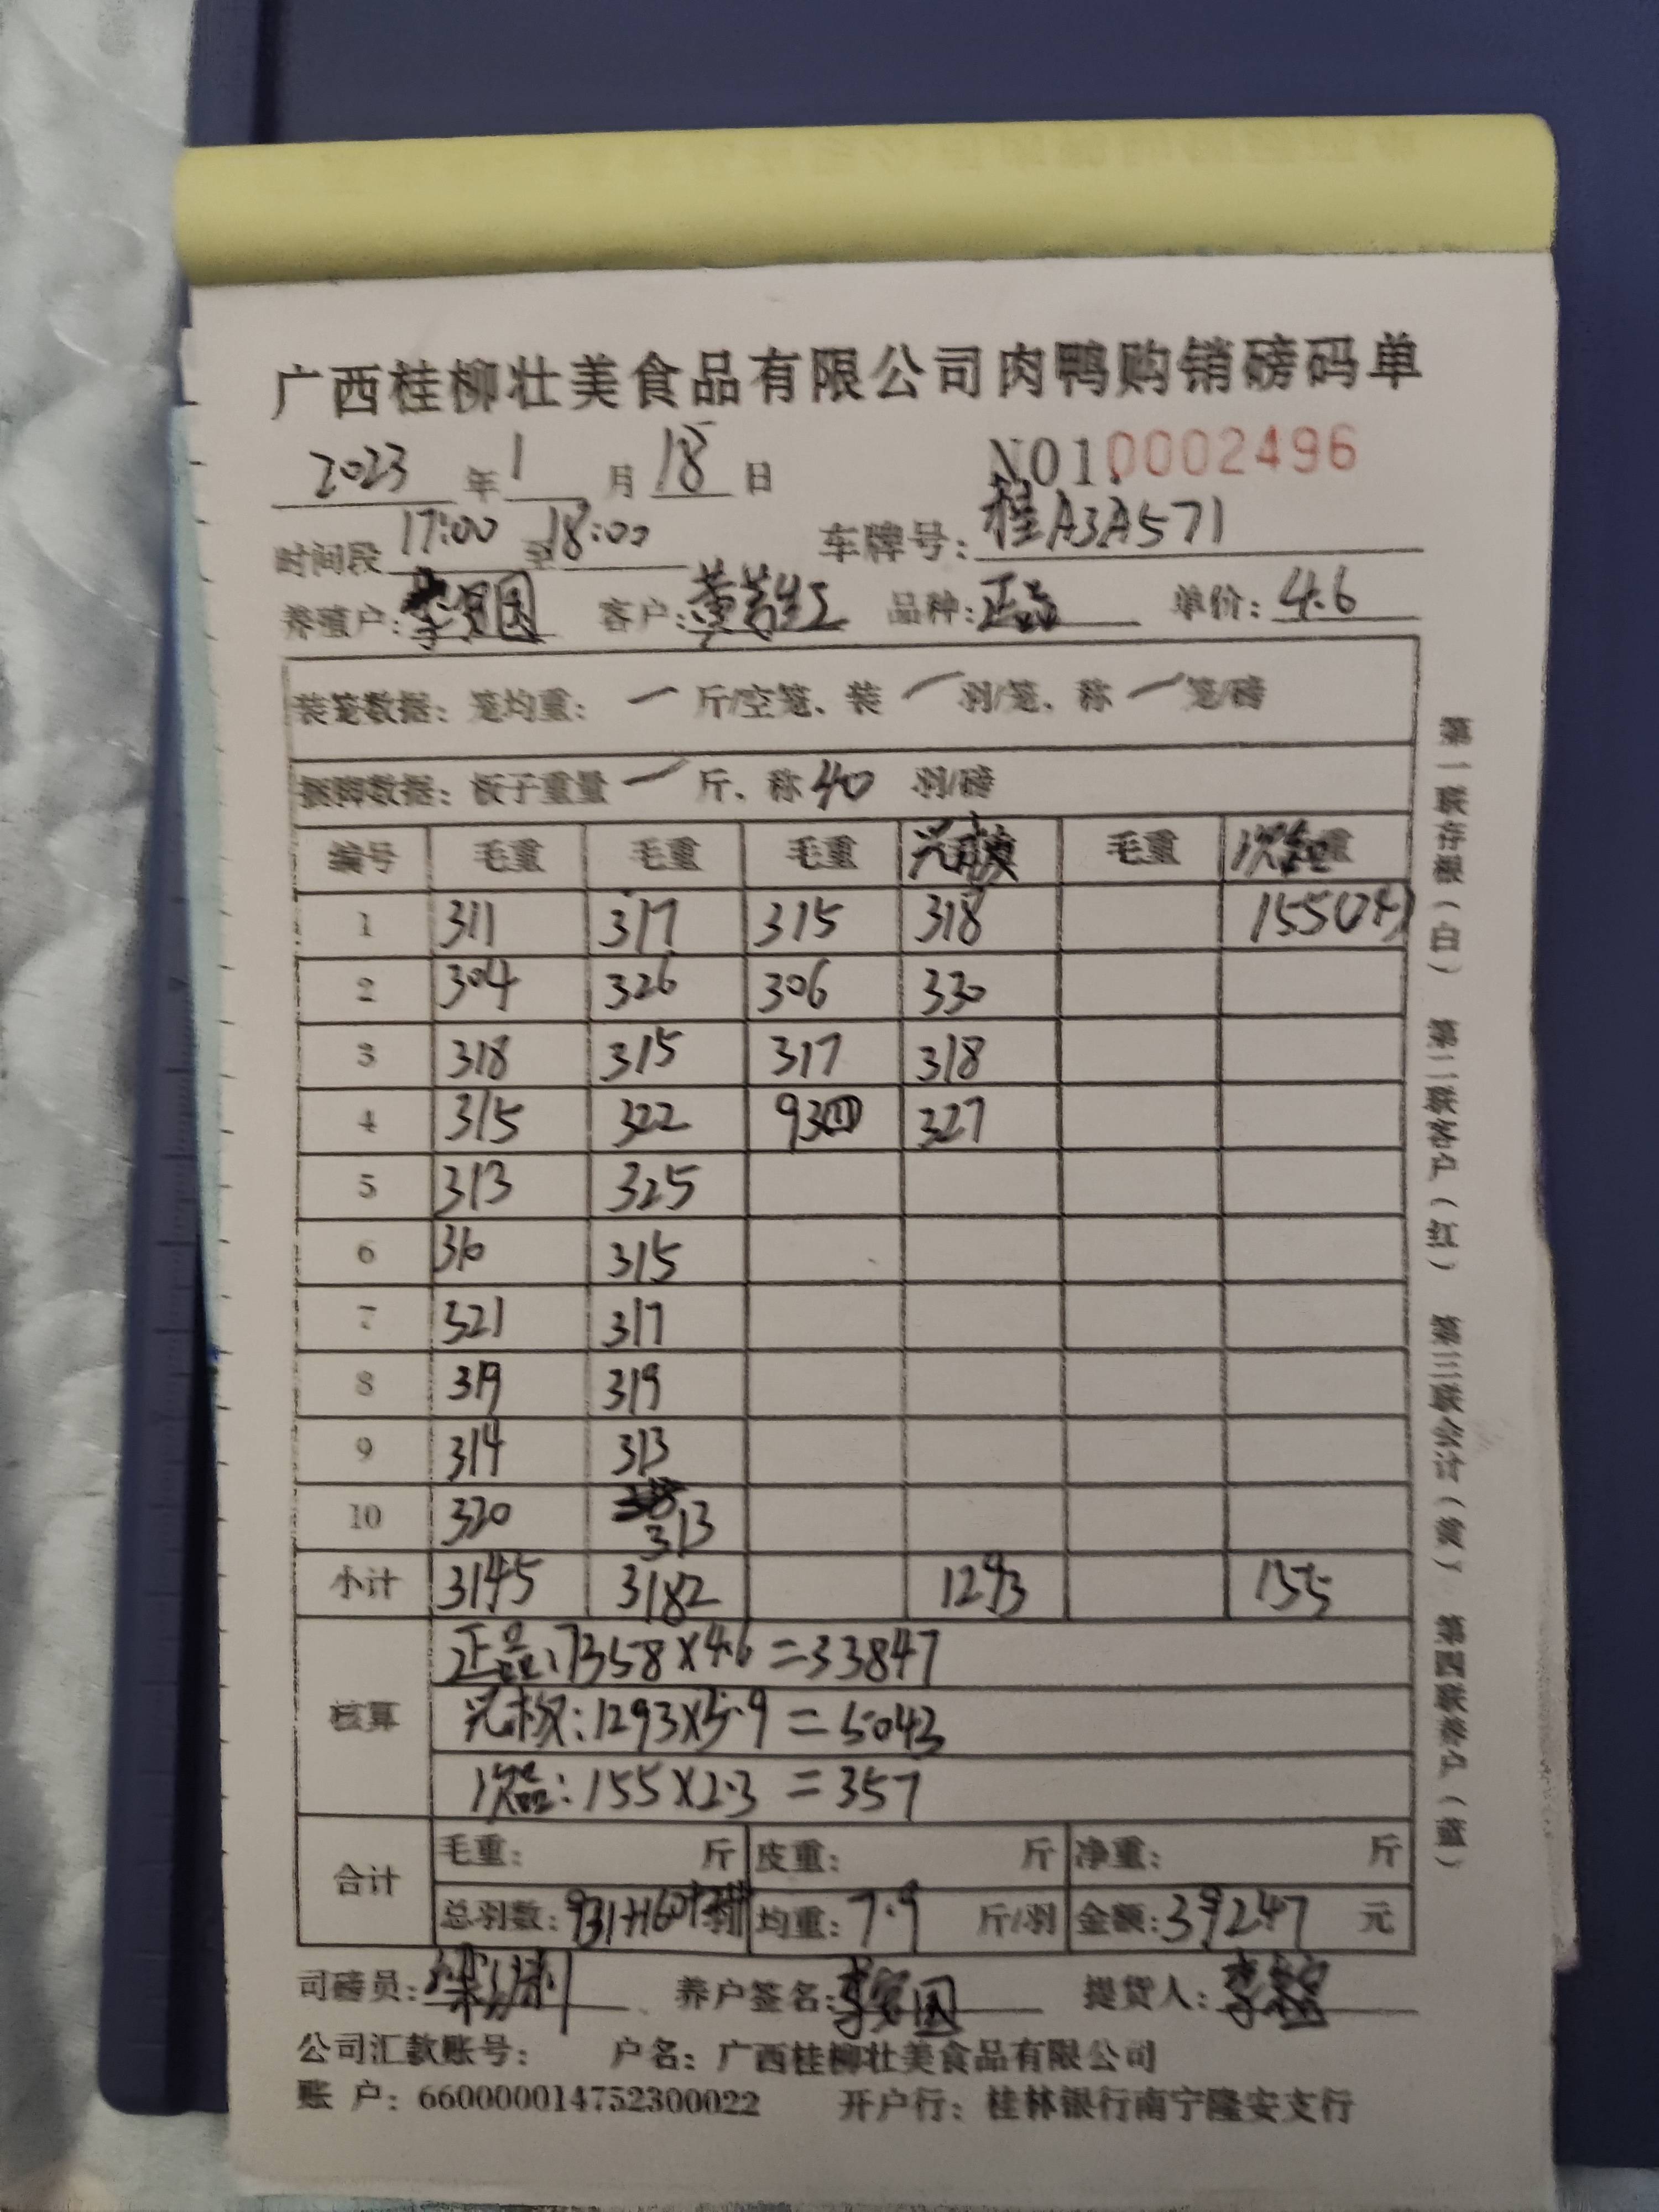 广西桂柳壮美食品有限公司肉鸭购销磅码单
2023 年 1 月 18 日 NO1.0002496
时间段 17:00 至 18:00 车牌号: 桂A3A571
养殖户: 客户: 品种: 正品 单价: 4.6
装笼数据: 笼均重: — 斤/空笼、装 — 羽/笼、称 — 笼/磅
捆脚数据: 板子重量 — 斤、称 40 羽/磅
编号 毛重 毛重 毛重 毛重 次品
1 311 317 315 318 155(24)
2 304 326 306 330
3 318 315 317 318
4 315 322 93⑪ 327
5 313 325
6 310 315
7 321 317
8 319 319
9 314 313
10 320 313
小计 3145 3182 1293 155
核算
正品:7358×4.6=33847
1293×3.9=5043
次品:155×2.3=357
合计 毛重: 斤 皮重: 斤 净重: 斤
总羽数: 931+160+ 均重: 7.9 斤/羽 金额: 39247 元
司磅员: 养户签名: 提货人:
公司汇款账号: 户名: 广西桂柳壮美食品有限公司
账 户: 660000014752300022 开户行: 桂林银行南宁隆安支行
第一联存根(白) 第二联客户(红) 第三联会计(黄) 第四联养户(蓝)